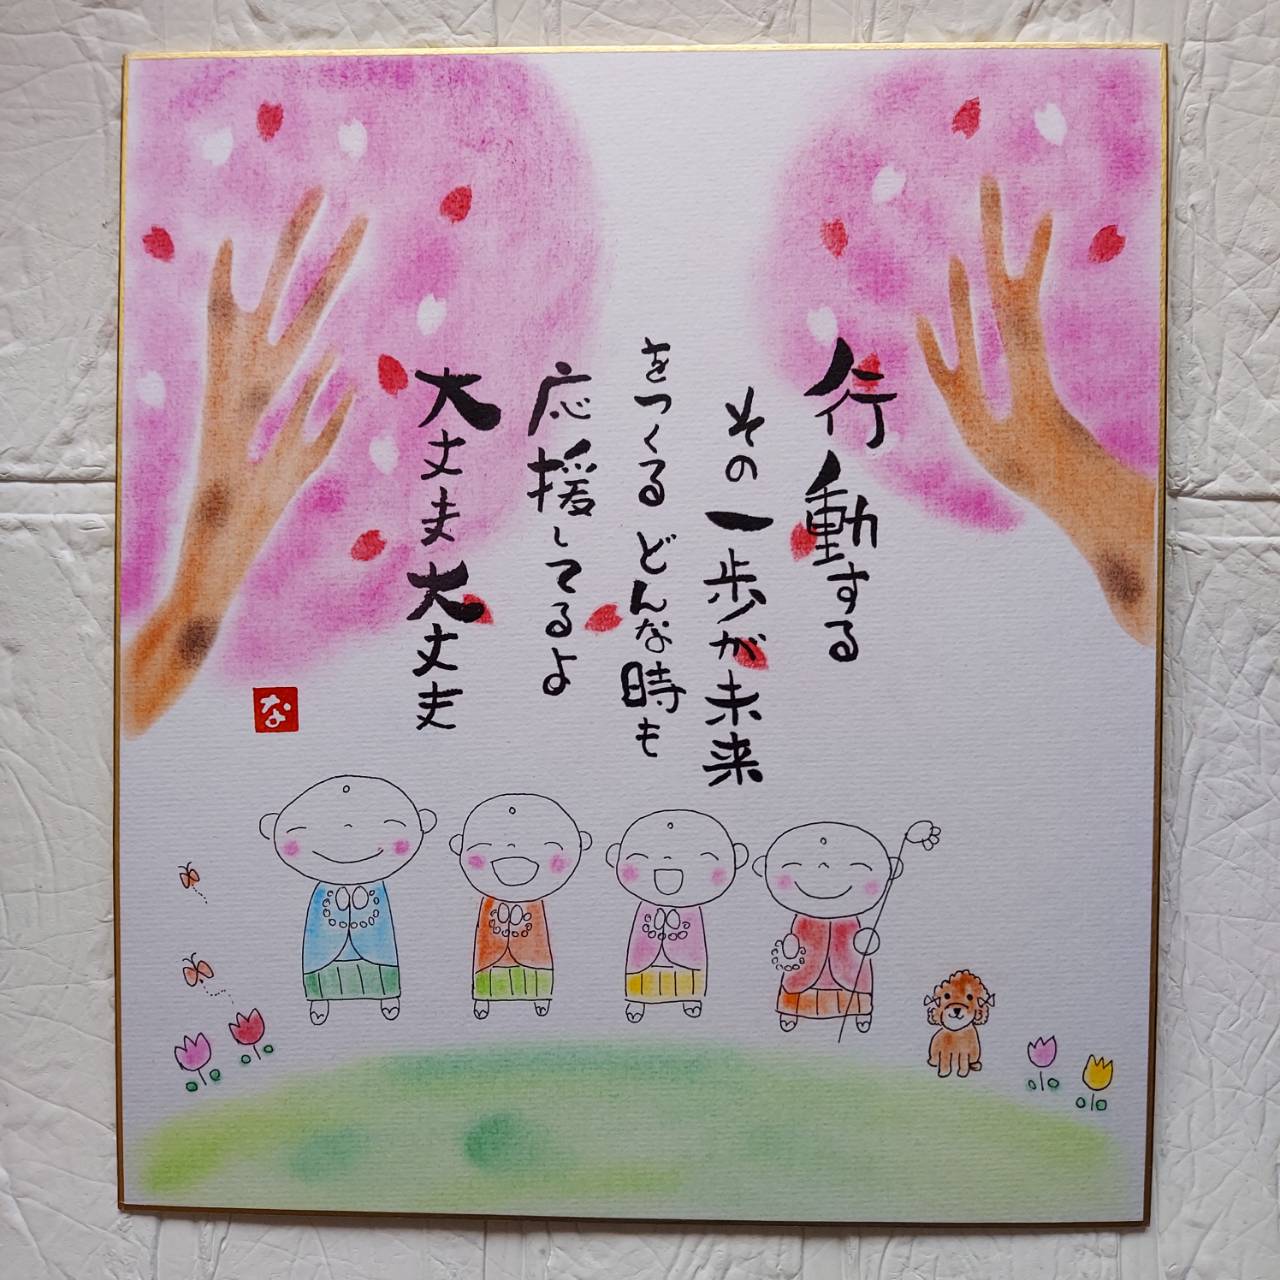 行動する
その一歩が未来
をつくる どんな時も
応援してるよ
大丈夫 大丈夫
な